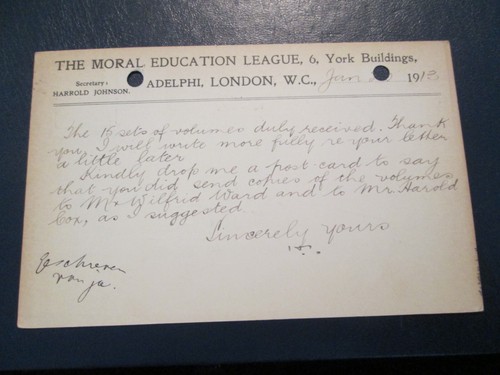 THE MORAL EDUCATION LEAGUE, 6, York Buildings,
Secretary:
HARROLD JOHNSON.
ADELPHI, LONDON, W.C., Jan 1913
The 15 sets of volumes duly received. Thank
you. I will write more fully re your letter
a little later
Kindly drop me a post card to say
that you did send copies of the volumes
to Mr Wilfrid Ward and to Mr. Harold
Cox, as I suggested.
Sincerely yours